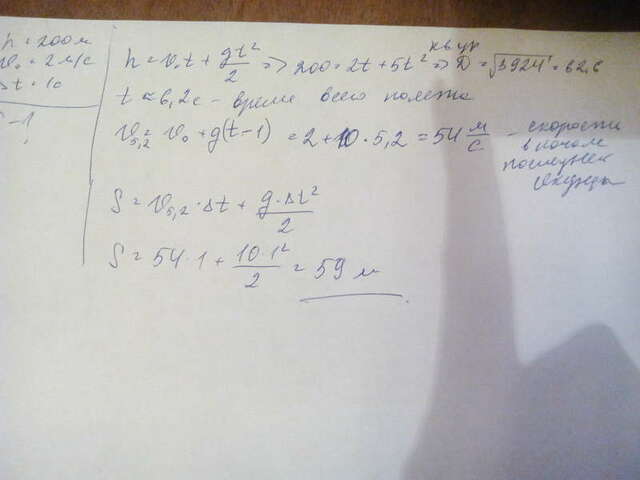 h = 200м
v₀ = 2 м/с
Δt = 1с
h = v₀t + gt²/2 => 200 = 2t + 5t² => D = √3924 = 62,6
кв ур
t ≈ 6,2с - время всего полета
v₅,₂ = v₀ + g(t-1) = 2 + 10 · 5,2 = 54 м/с - скорость
в начале
последней
секунды
S = v₅,₂ · Δt + g·Δt²/2
S = 54·1 + 10·1²/2 = 59 м